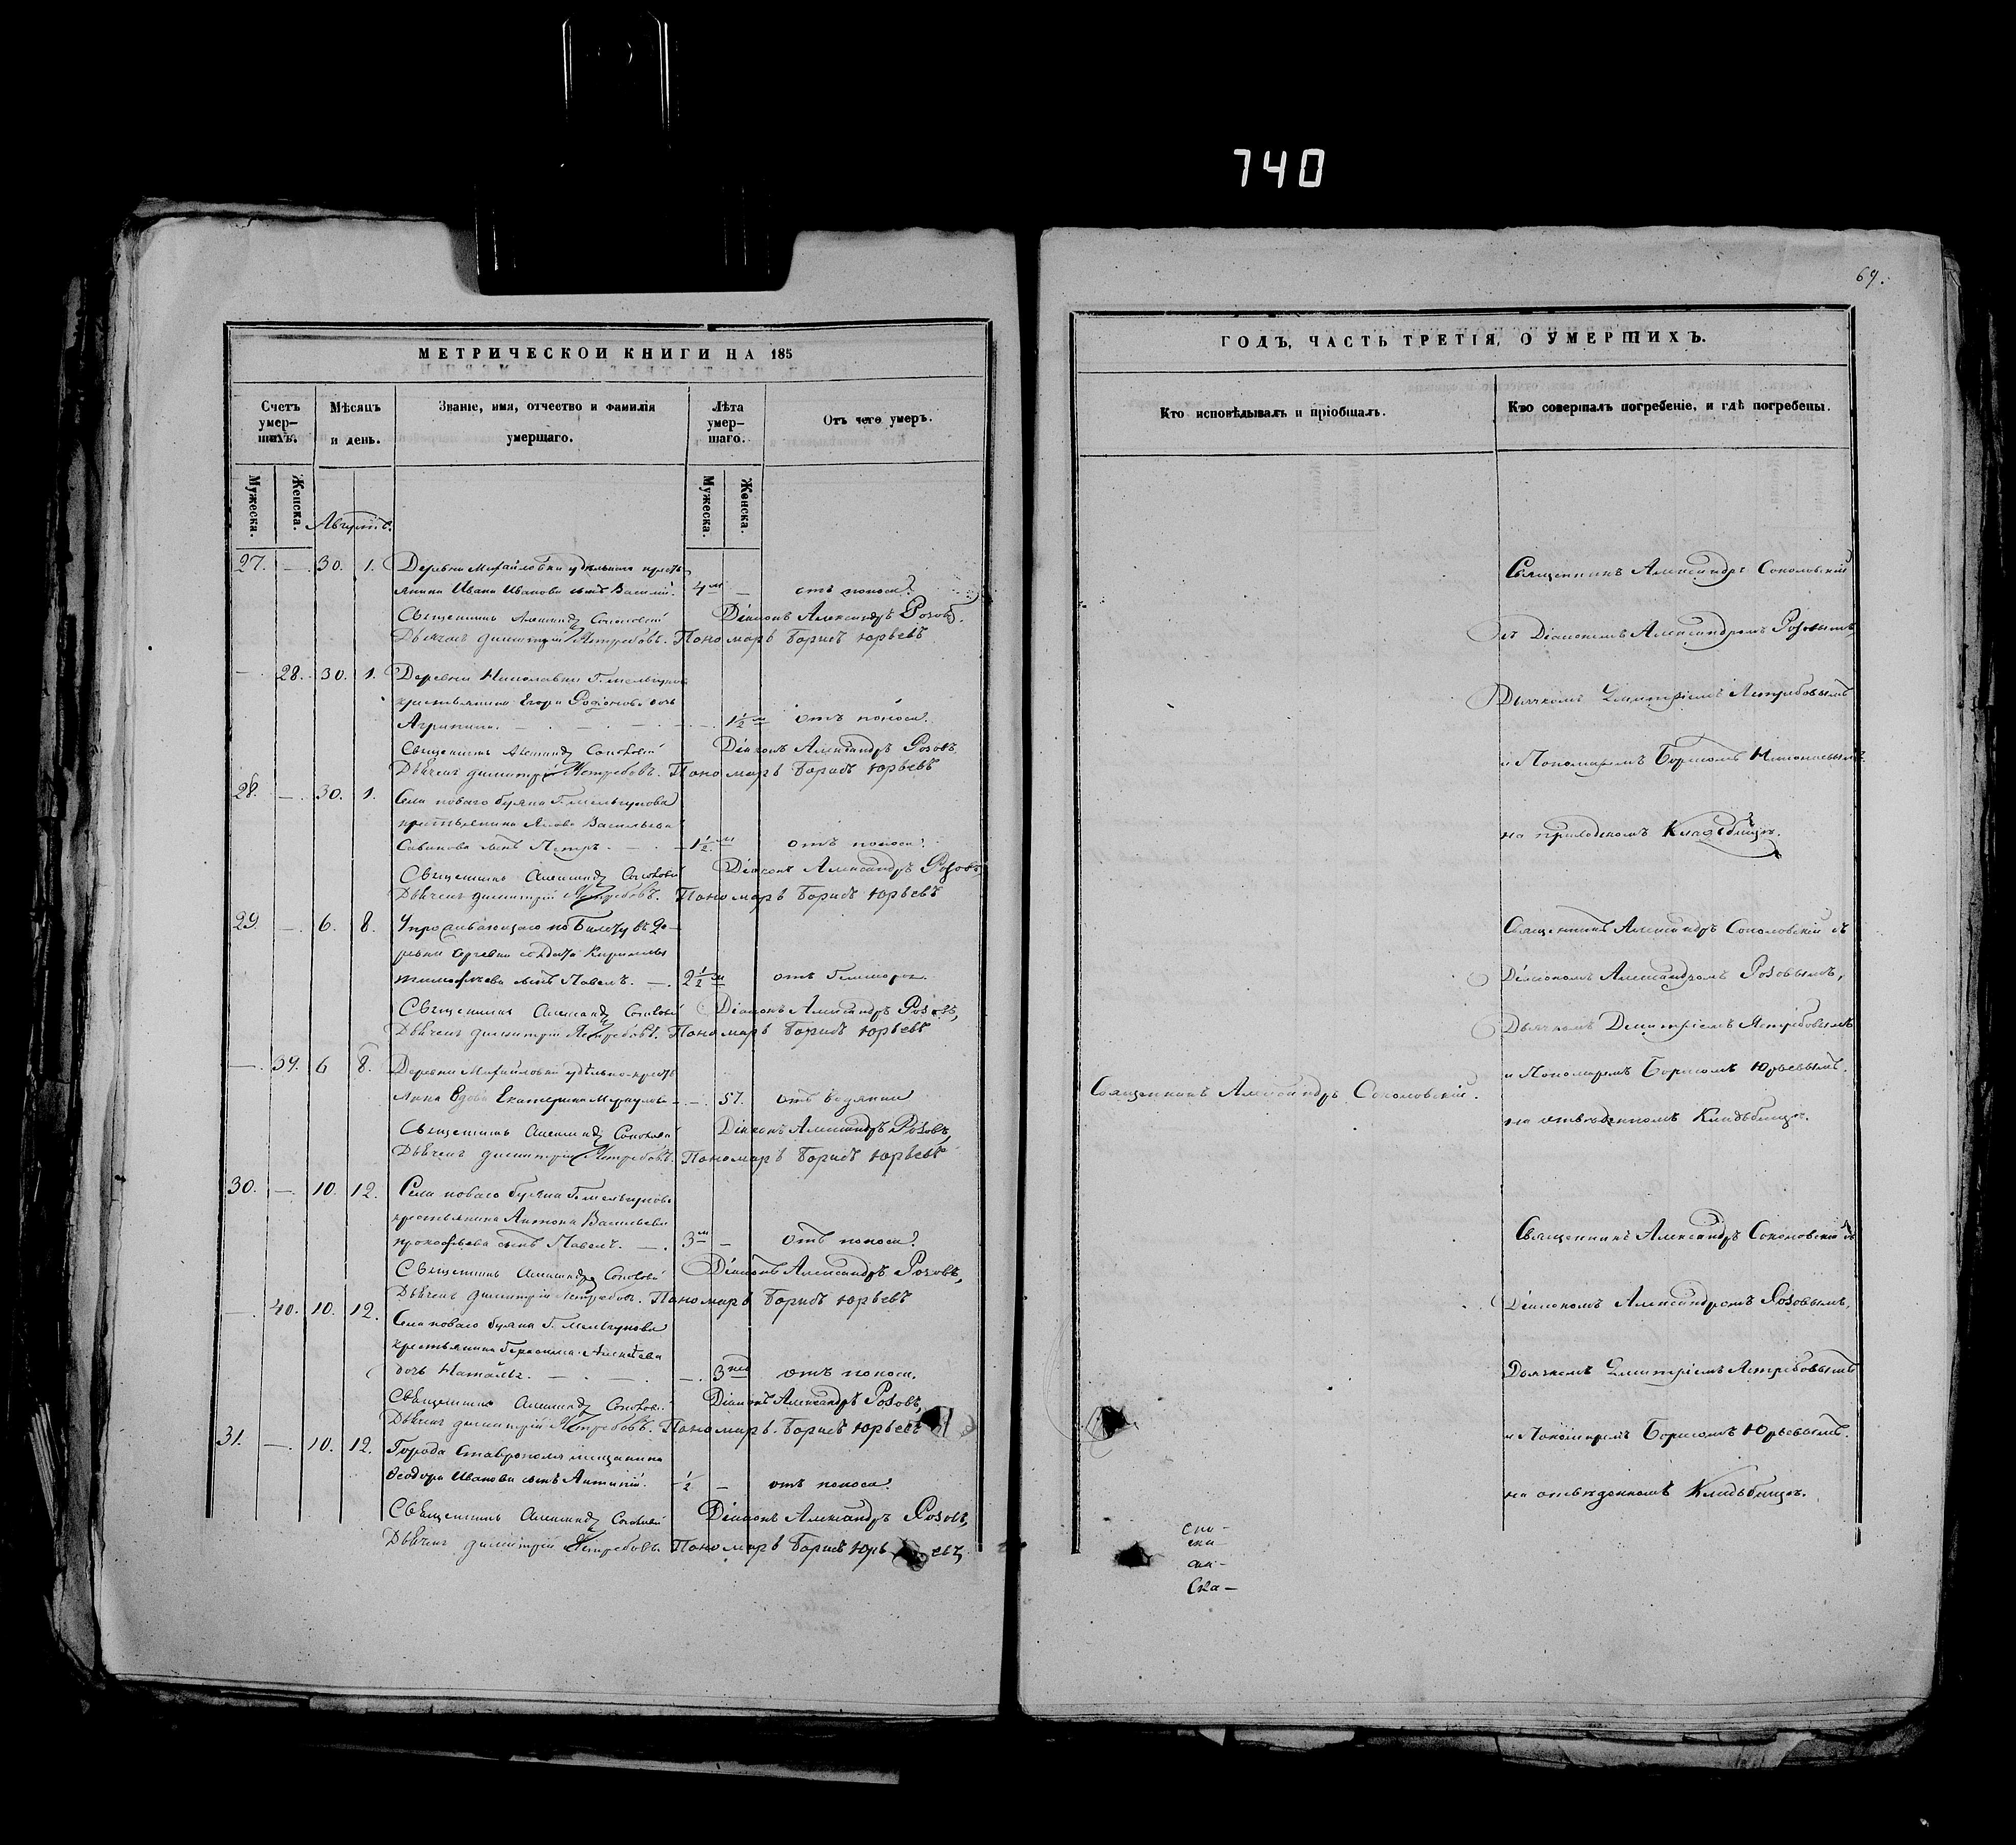 740
69.
МЕТРИЧЕСКОЙ КНИГИ НА 185
Счетъ умер-шихъ.
Мѣсяцъ и день.
Званіе, имя, отчество и фамилія умершаго.
Лѣта умер-шаго.
Отъ чего умеръ.
Мужеска.
Женска.
Мужеска.
Женска.
Августъ.
27. — 30. 1. Деревни Михайловки удѣльнаго кресть
янина Ивана Иванова сынъ Василій. 4м — отъ поноса.
Священникъ Александръ Соколовскій Діаконъ Александръ Розовъ.
Дьячекъ Димитрій Ястребовъ. Пономарь Борисъ Юрьевъ
— 28. 30. 1. Деревни Николаевки Г. Мельгунова
крестьянина Егора Родіонова дочь
Агрипина. — 1½м отъ поноса.
Священникъ Александръ Соколовскій Діаконъ Александръ Розовъ,
Дьячекъ Димитрій Ястребовъ. Пономарь Борисъ Юрьевъ
28. — 30. 1. Села новаго Буяна Г. Мельгунова
крестьянина Якова Васильева
Савинова сынъ Петръ. — 1½м отъ поноса.
Священникъ Александръ Соколовскій Діаконъ Александръ Розовъ
Дьячекъ Димитрій Ястребовъ. Пономарь Борисъ Юрьевъ
29. — 6. 8. Упроживающаго по Билету въ де-
ревни солдата Кирилы
Тимофѣева сынъ Павелъ. — 2½м отъ
Священникъ Александръ Соколовскій Діаконъ Александръ Розовъ,
Дьячекъ Димитрій Ястребовъ. Пономарь Борисъ Юрьевъ
— 39. 6 8. Деревни Михайловки удѣльна кресть
янка Вдова Екатерина — 57. отъ водянки
Священникъ Александръ Соколовскій Діаконъ Александръ Розовъ,
Дьячекъ Димитрій Ястребовъ. Пономарь Борисъ Юрьевъ
30. — 10. 12. Села новаго Буяна Г. Мельгунова
крестьянина Антона Васильева
Прокофьева сынъ Павелъ. — 3м — отъ поноса.
Священникъ Александръ Соколовскій Діаконъ Александръ Розовъ,
Дьячекъ Димитрій Ястребовъ. Пономарь Борисъ Юрьевъ
— 40. 10. 12. Села новаго Буяна Г. Мельгунова
крестьянина Герасима Алексѣева
дочь Наталья. — 3нед отъ поноса.
Священникъ Александръ Соколовскій Діаконъ Александръ Розовъ,
Дьячекъ Димитрій Ястребовъ. Пономарь Борисъ Юрьевъ
31. — 10. 12. Города Ставрополя мещанина
Ѳеодора Иванова сынъ ½ — отъ поноса.
Священникъ Александръ Соколовскій Діаконъ Александръ Розовъ,
Дьячекъ Димитрій Ястребовъ Пономарь Борисъ Юрьевъ,
ГОДЪ, ЧАСТЬ ТРЕТІЯ, О УМЕРШИХЪ.
Кто исповѣдывалъ и пріобщалъ.
Кто совершалъ погребеніе, и гдѣ погребены.
Священникъ Александръ Соколовскій
съ Діакономъ Александромъ Розовымъ,
Дьячкомъ Димитріемъ Ястребовымъ
и Пономаремъ Борисомъ
на приходскомъ Кладбищѣ.
Священникъ Александръ Соколовскій съ
Діакономъ Александромъ Розовымъ,
Дьячкомъ Димитріемъ Ястребовымъ
и Пономаремъ Борисомъ Юрьевымъ.
Священникъ Александръ Соколовскій.
на отведенномъ Кладбищѣ.
Священникъ Александръ Соколовскій съ
Діакономъ Александромъ Розовымъ,
Дьячкомъ Димитріемъ Ястребовымъ
и Пономаремъ Борисомъ Юрьевымъ.
на отведенномъ Кладбищѣ.
Ска-